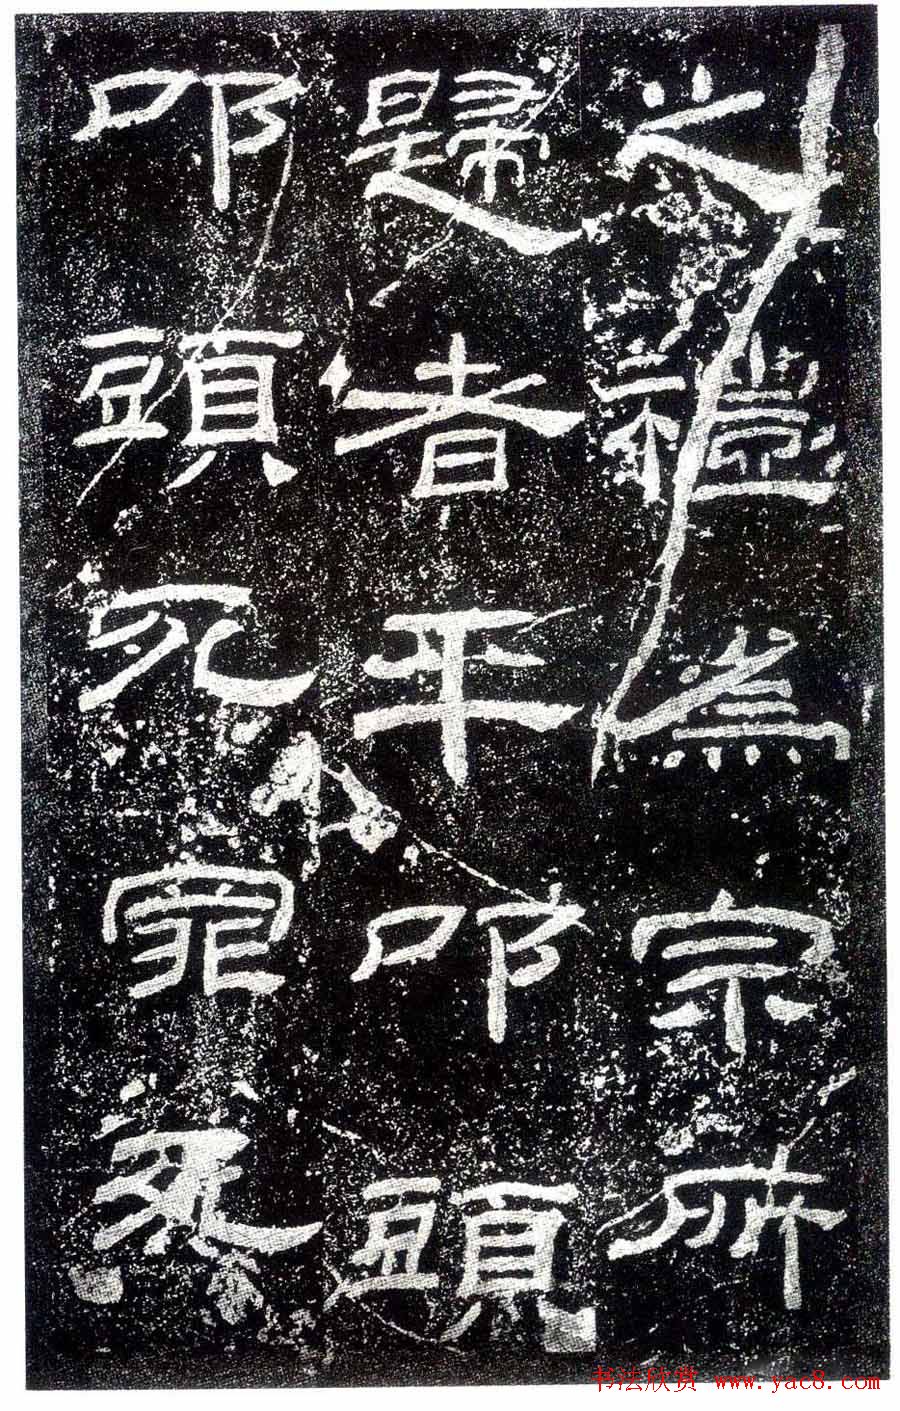 之禮為宗所
歸者平叩頭
叩頭死罪死
书法欣赏 www.yac8.com